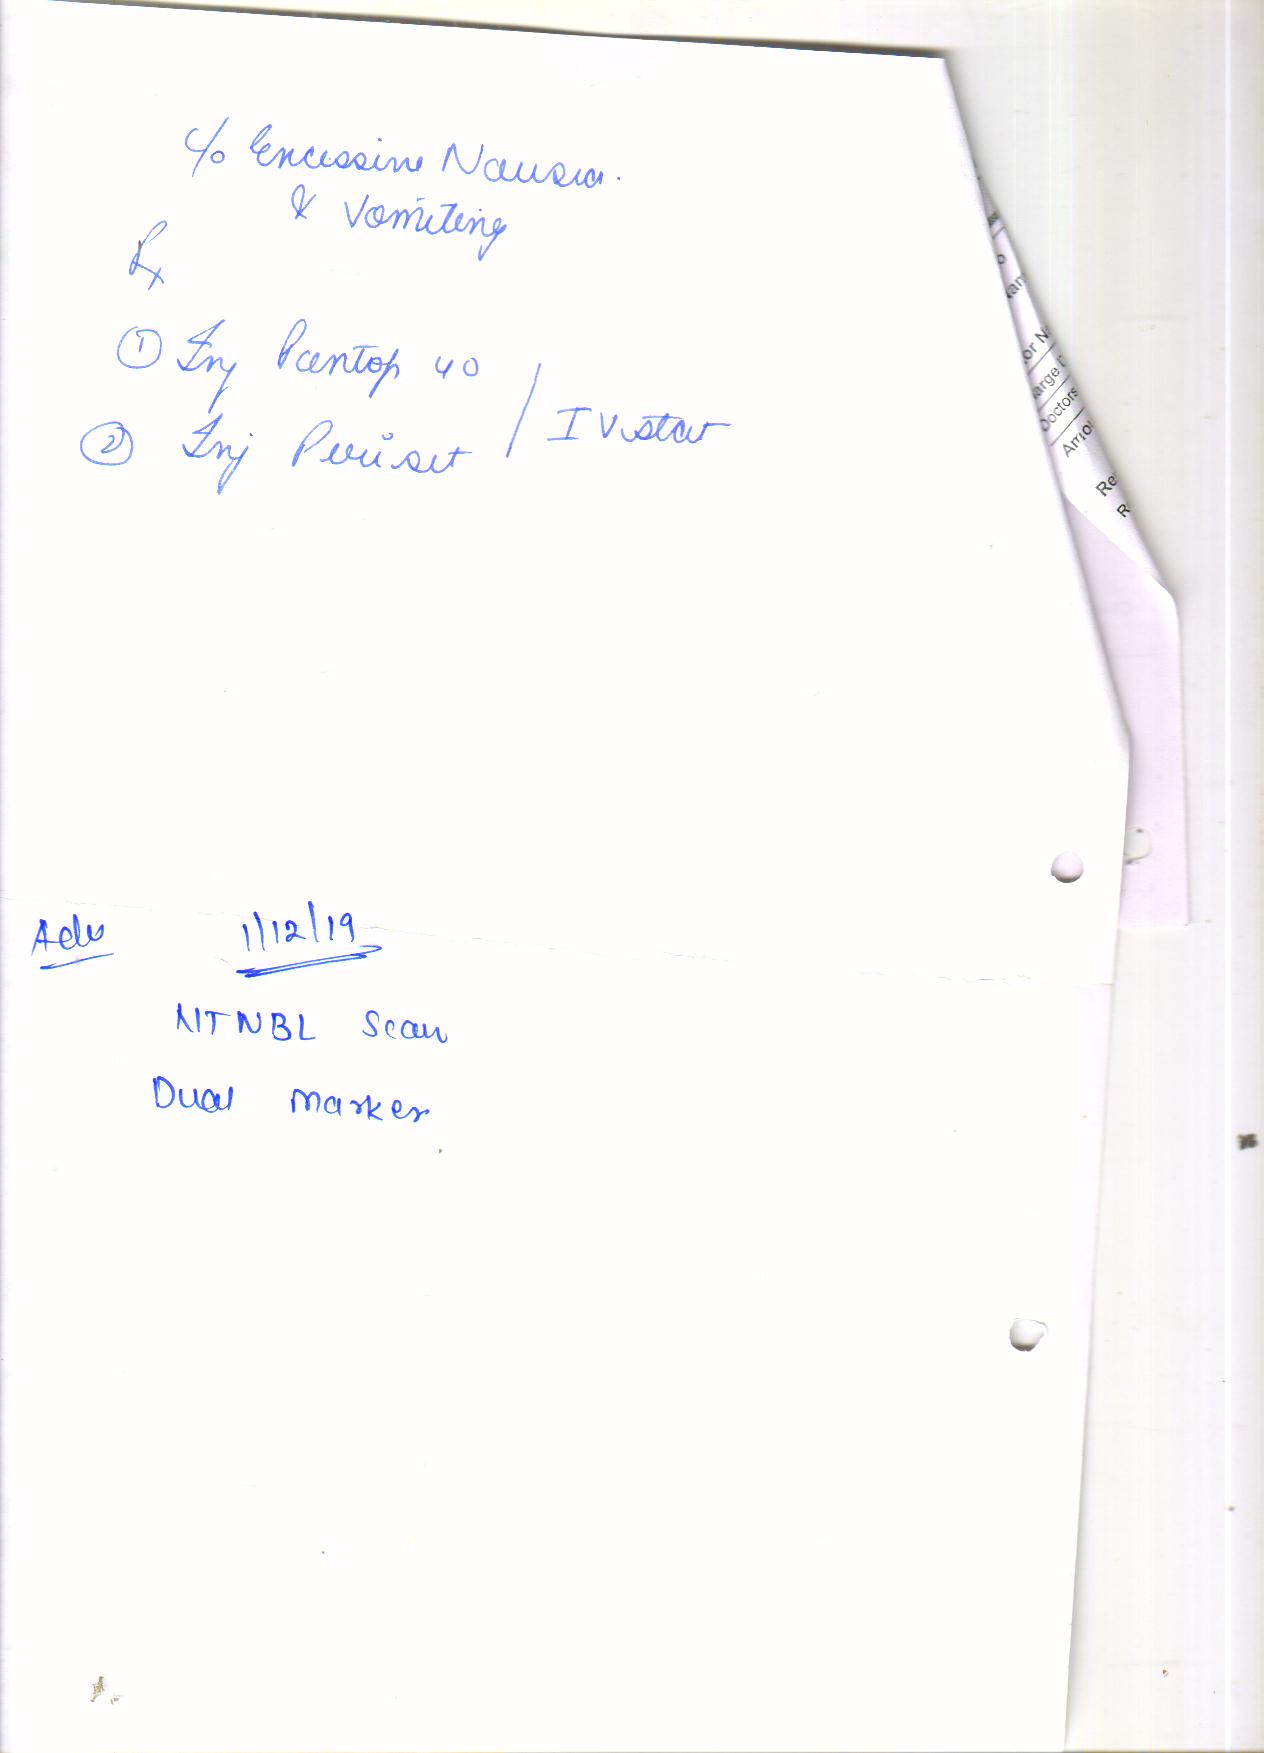 c/o Excessive Nausea.
& Vomiting
Rx
① Inj Pantop 40
② Inj Periset / IV stat
Adv 1/12/19
NTNBL Scan
Dual Marker
or N
arge
Doctors
Amo
Re
R